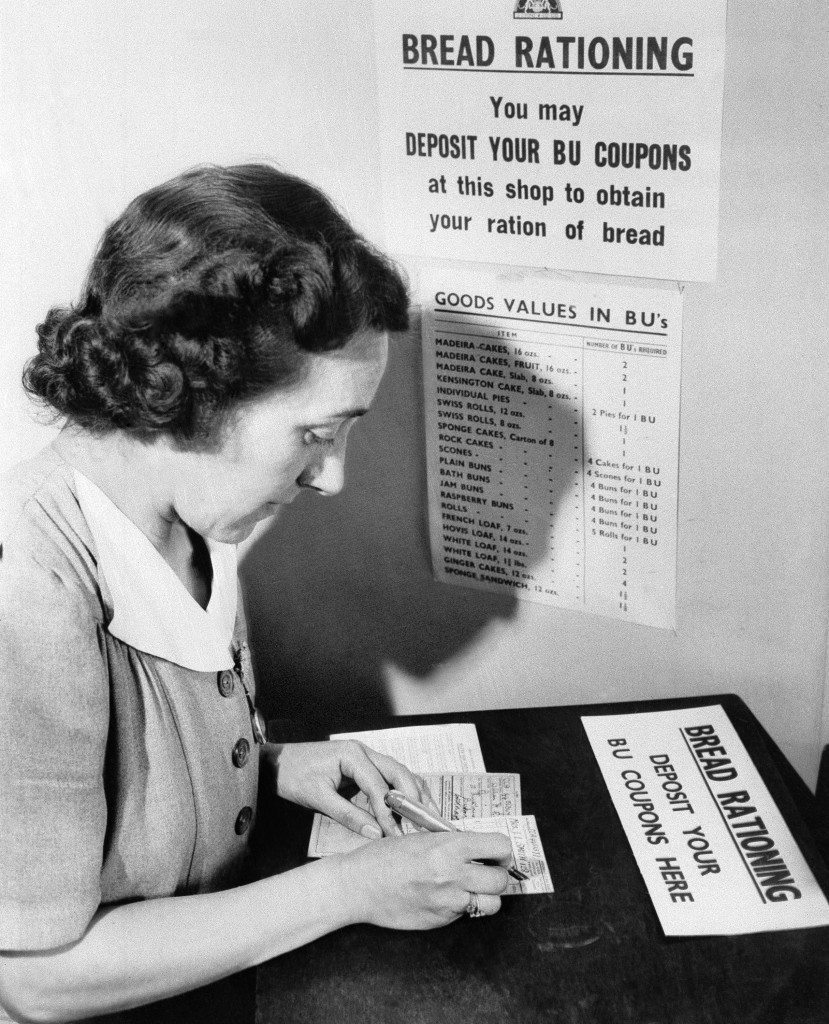 BREAD RATIONING
You may
DEPOSIT YOUR BU COUPONS
at this shop to obtain
your ration of bread
GOODS VALUES IN BU's
ITEM NUMBER OF BU's REQUIRED
MADEIRA-CAKES, 16 ozs. - - 2
MADEIRA CAKES, FRUIT, 16 ozs. - 2
MADEIRA CAKE, Slab, 8 ozs. - 1
KENSINGTON CAKE, Slab, 8 ozs. - 1
INDIVIDUAL PIES - - - 2 Pies for 1 BU
SWISS ROLLS, 12 ozs. - - 1½
SWISS ROLLS, 8 ozs. - - 1
SPONGE CAKES, Carton of 8 - 1
ROCK CAKES - - - 4 Cakes for 1 BU
SCONES - - - - 4 Scones for 1 BU
PLAIN BUNS - - - 4 Buns for 1 BU
BATH BUNS - - - 4 Buns for 1 BU
JAM BUNS - - - 4 Buns for 1 BU
RASPBERRY BUNS - - - 4 Buns for 1 BU
ROLLS - - - - 5 Rolls for 1 BU
FRENCH LOAF, 7 ozs. - - 1
HOVIS LOAF, 14 ozs. - - 2
WHITE LOAF, 14 ozs. - - 2
WHITE LOAF, 1¾ lbs. - - 4
GINGER CAKES, 12 ozs. - - 1½
SPONGE SANDWICH, 12 ozs. - 1½
BREAD RATIONING
DEPOSIT YOUR
BU COUPONS HERE